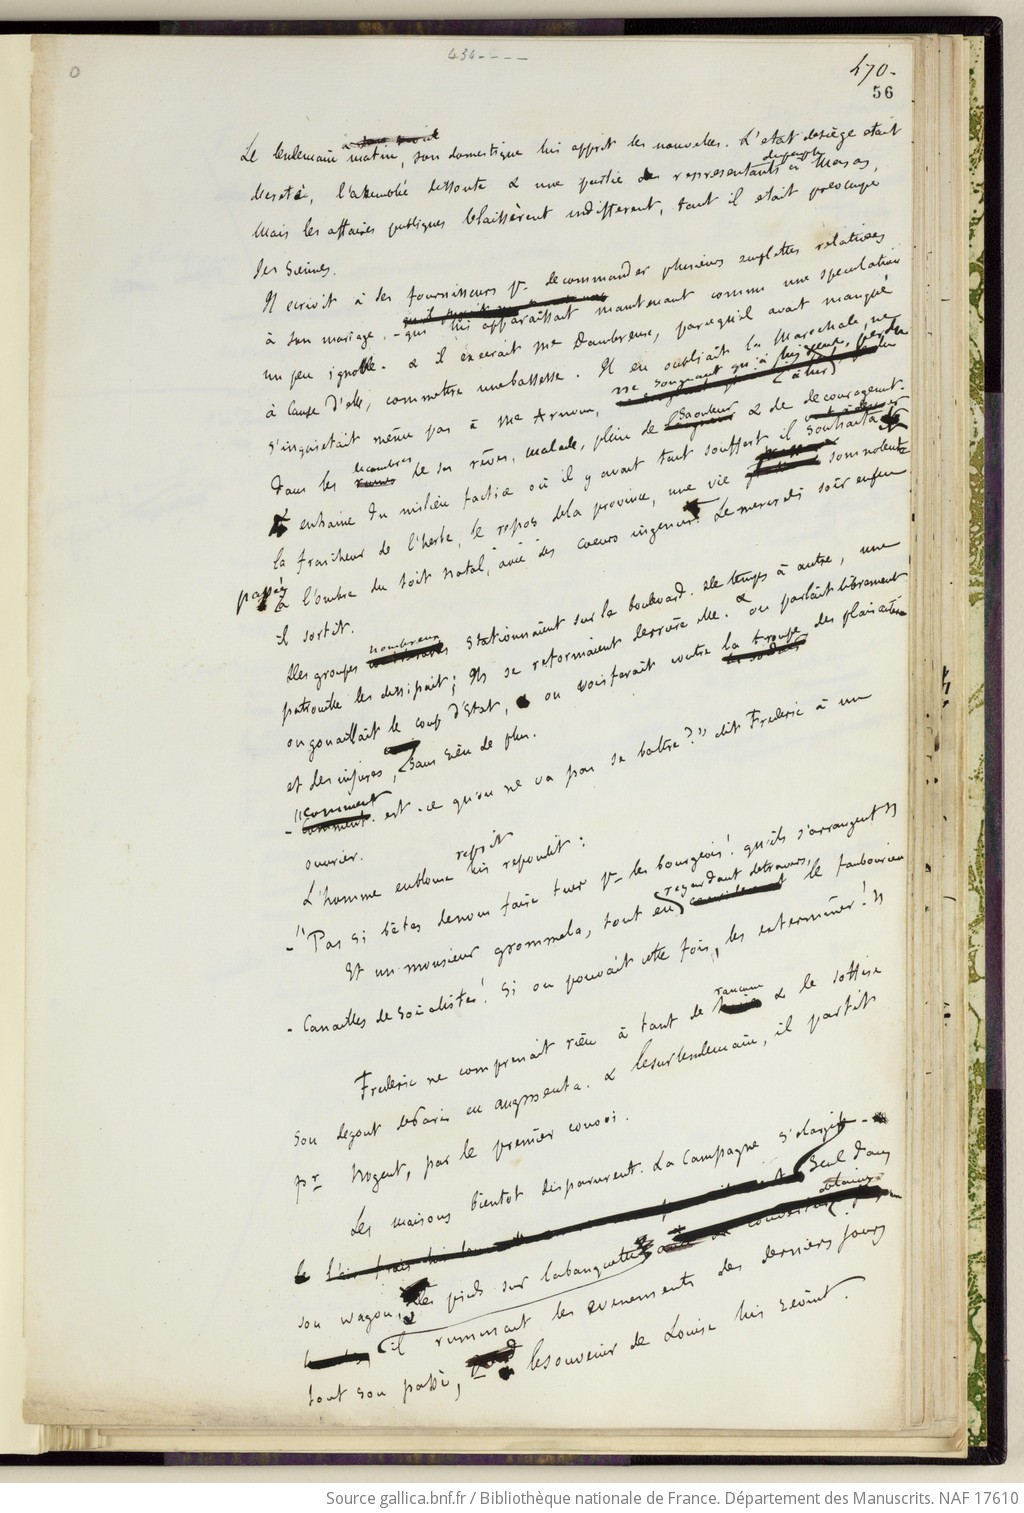 434----
470-
56
Le lendemain matin, son domestique lui apprit les nouvelles. L'etat de siège etait
decreté, l'assemblée dissoute & une partie des representants deputés à Mazas,
Mais les affaires publiques le laissèrent indifferent, tant il etait préoccupé
des siennes.
Il ecrivit à des fournisseurs pr decommander plusieurs emplettes relatives
à son mariage, - qui lui apparaissait maintenant comme une speculation
un peu ignoble. & il exécrait Me Dambreuse, parcequ'il avait manqué
à cause d'elle, commettre une bassesse. Il en oubliait la Marechale, ne
s'inquietait même pas de Me Arnoux, ne songeant qu'à lui seul, perdu
(à lui)
dans les decombres de ses rêves, malade, plein de douleur & de decouragement.
& en haine du milieu factice où il y avait tant souffert il souhaita
la fraicheur de l'herbe, le repos de la province, une vie somnolente
passée
à l'ombre du toit natal, avec des coeurs ingenus. Le mercredi soir enfin
il sortit.
Des groupes nombreux stationnaient sur le boulevard. De temps à autre, une
patrouille les dissipait; Ils se reformaient derrière elle. & on parlait librement
on gouaillait le coup d'Etat, on vociferait contre la troupe des plaisanteries
et des injures, sans rien de plus.
- "Comment est-ce qu'on ne va pas se battre?" dit Frederic à un
ouvrier.
reprit
L'homme en blouse lui repondit:
- "Pas si bêtes de nous faire tuer pr les bourgeois! qu'ils s'arrangent"
Et un monsieur grommela, tout en regardant de travers, le faubourien
- Canailles de Socialistes! Si on pouvait cette fois, les exterminer!"
Frederic ne comprenait rien à tant de rancune & de sottise
Son degout de Paris en augmenta. & le surlendemain, il partit
pr Nogent, par le premier convoi.
Les maisons bientot disparurent. La campagne s'elargit -
Seul dans
son wagon, & les pieds sur la banquette
il ruminait les evenements des derniers jours
tout son passé, le souvenir de Louise lui revint.
Source gallica.bnf.fr / Bibliothèque nationale de France. Département des Manuscrits. NAF 17610